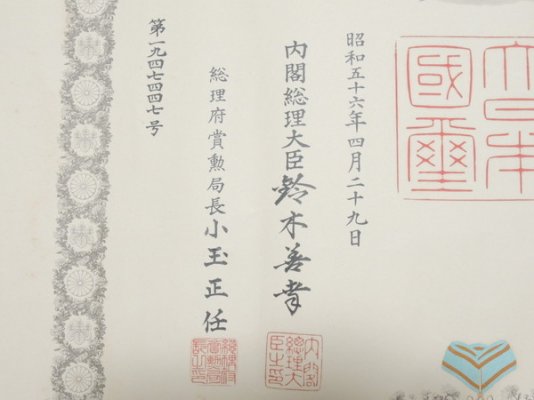 大日本
國璽
昭和五十六年四月二十九日
内閣総理大臣 鈴木善幸
内閣
総理大
臣之印
総理府賞勲局長 小玉正任
総理府
賞勲局
長之印
第一九四七四四七号